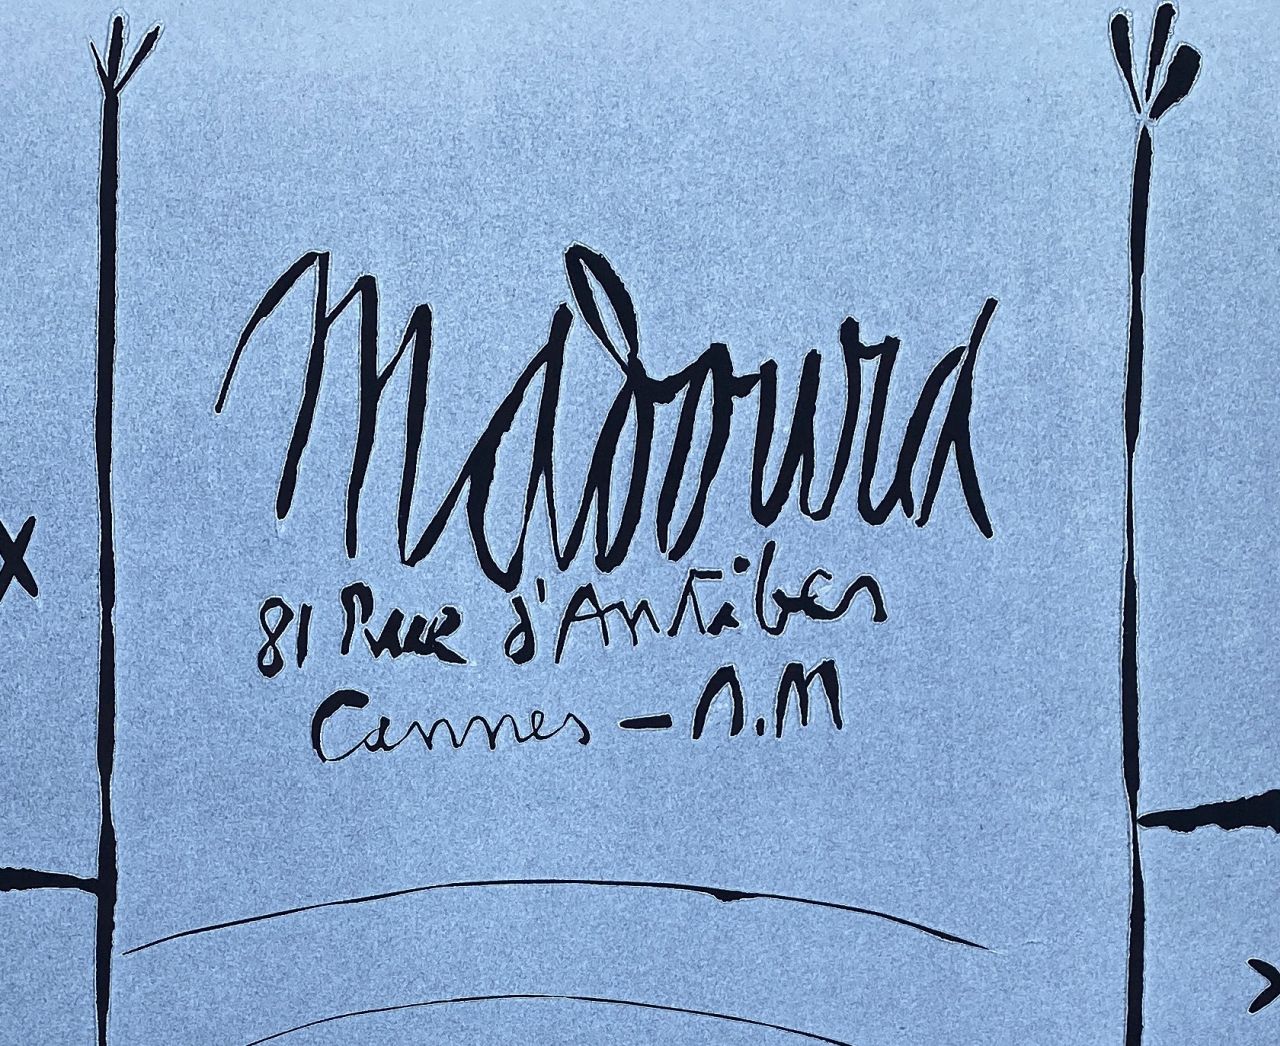 Madoura
81 Rue d'Antibes
Cannes – A.M